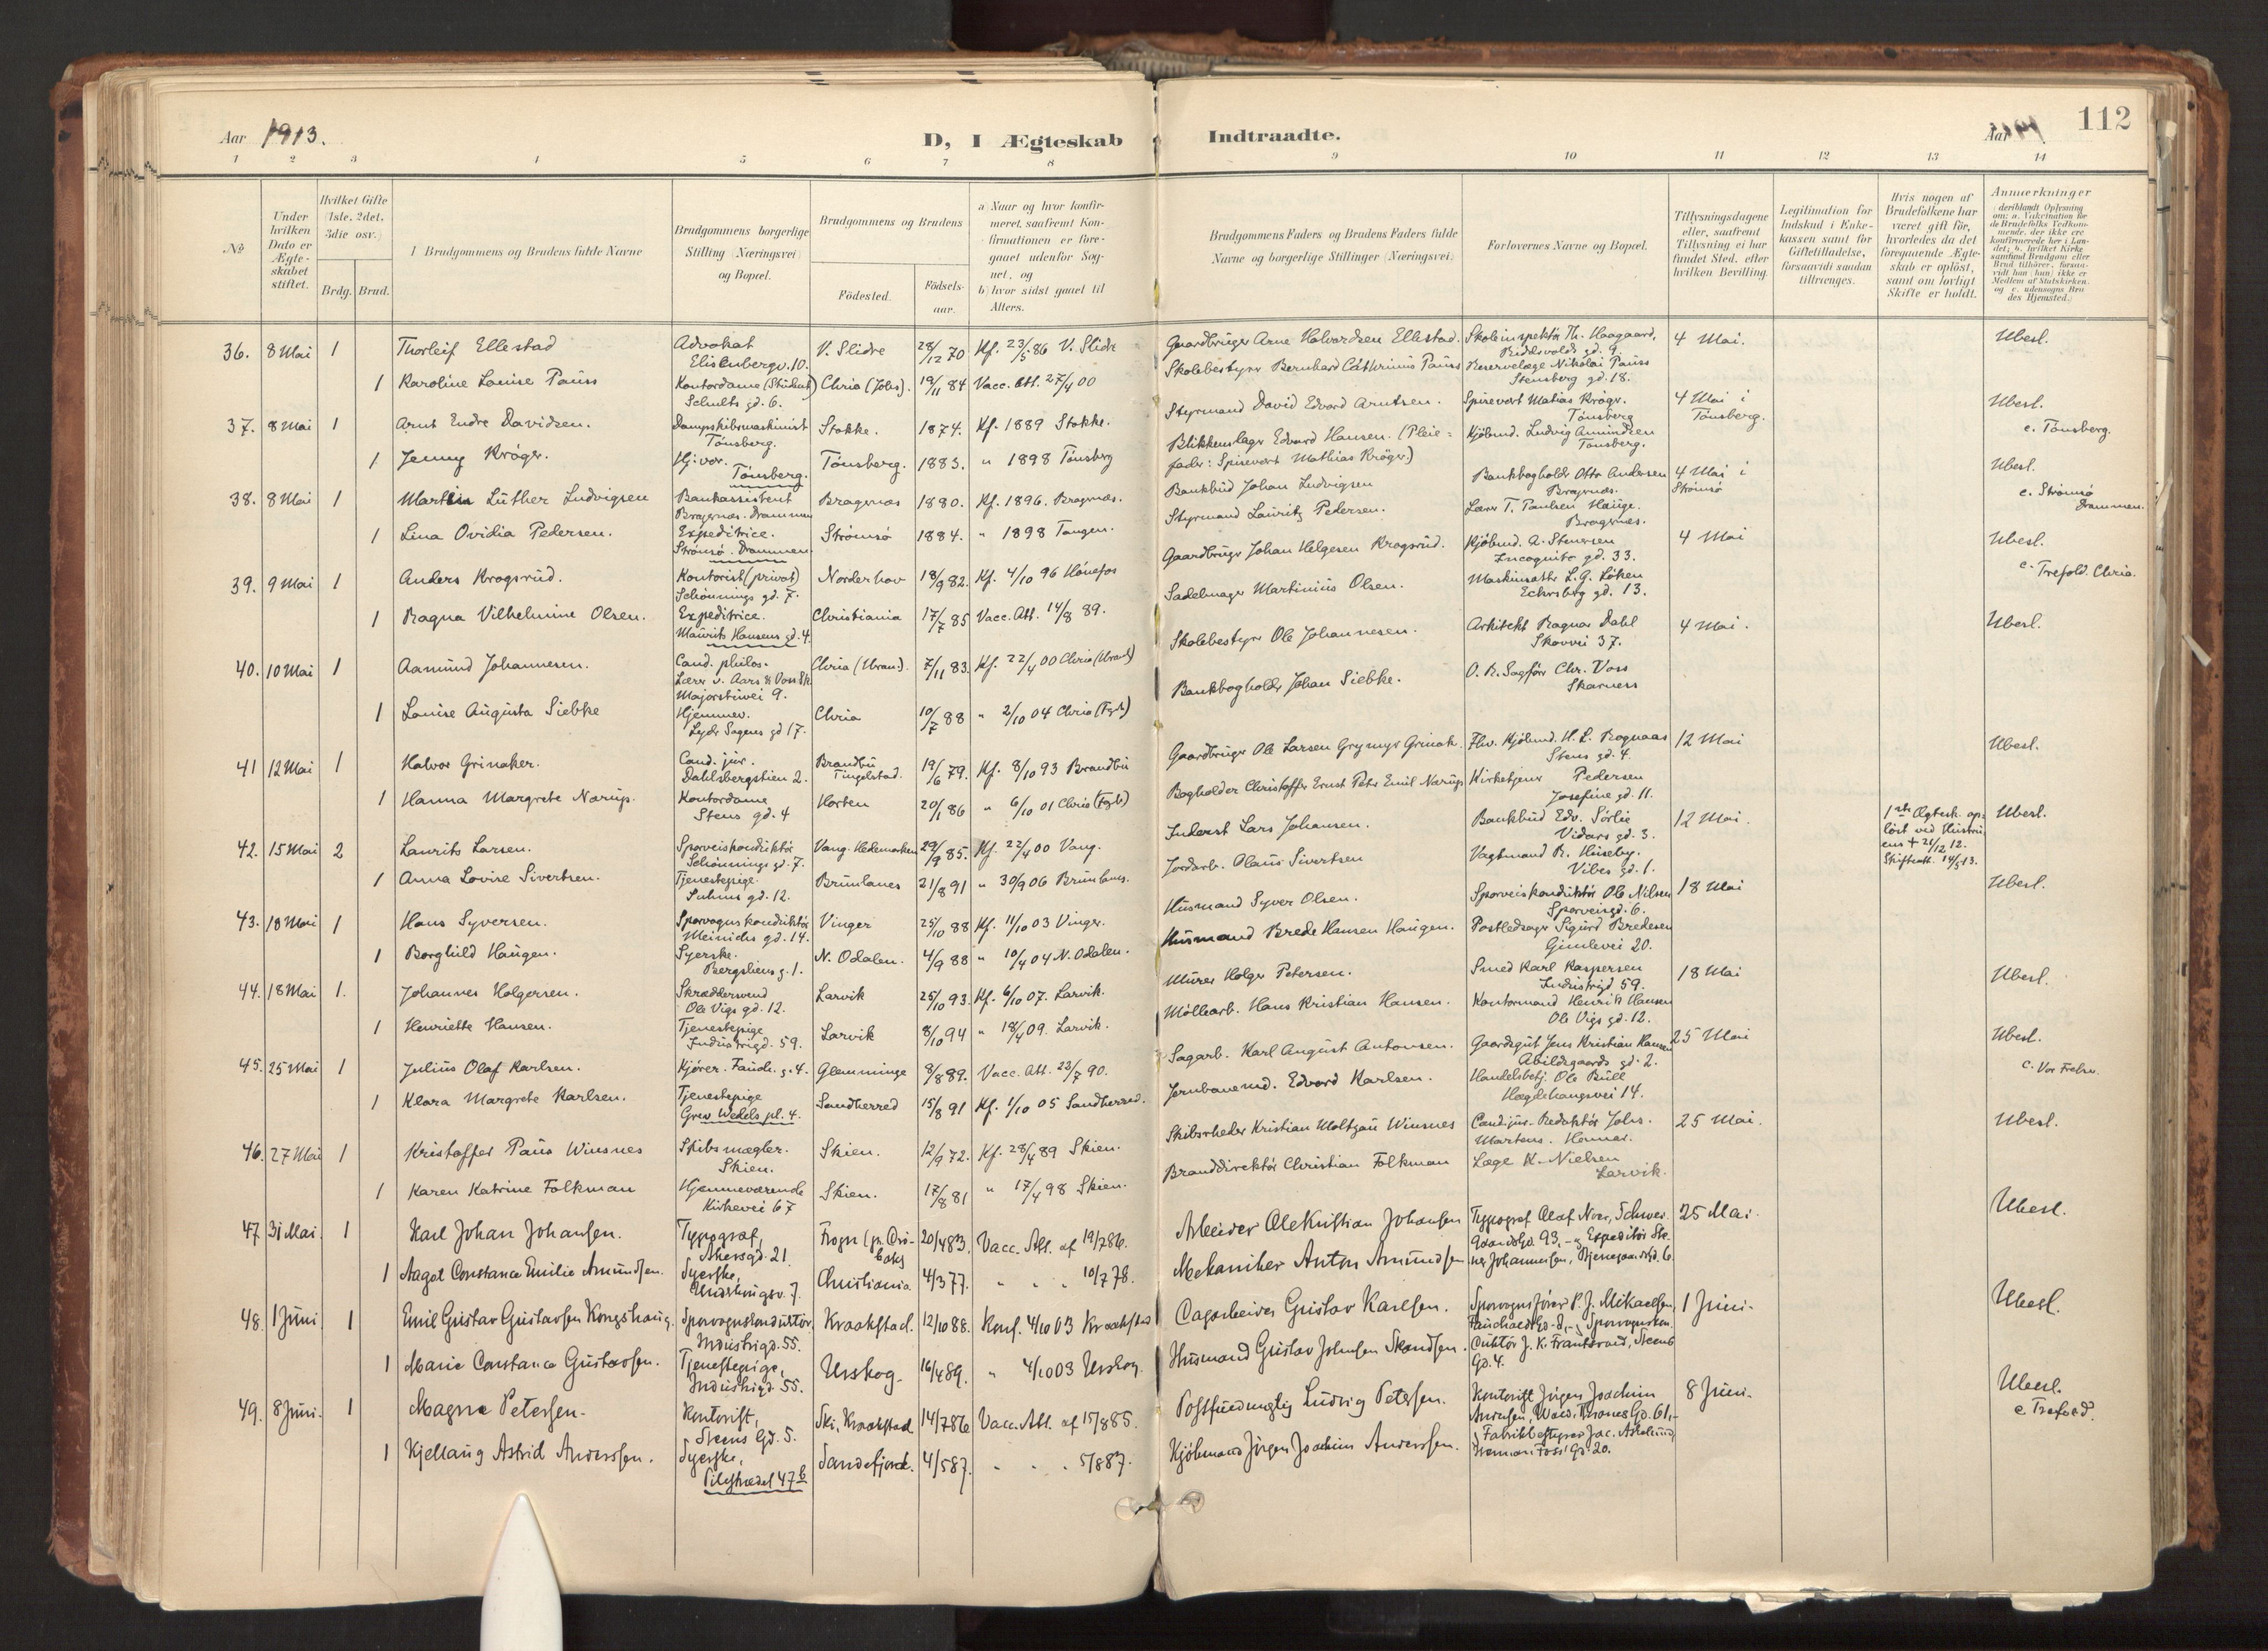 Aar 1913.
D, I Ægteskab Indtraadte.
Aar
112
1 2 3 4 5 6 7 8 9 10 11 12 13 14
No
Under hvilken Dato er Ægteskabet stiftet.
Hvilket Gifte (1ste, 2det, 3die osv.)
Brdg. Brud.
Brudgommens og Brudens fulde Navne
Brudgommens borgerlige Stilling (Næringsvei) og Bopæl.
Brudgommens og Brudens
Födested.
Födsels-aar.
a) Naar og hvor konfirmeret, saafremt Konfirmationen er foregaaet udenfor Sognet, og
b) hvor sidst gaaet til Alters.
Brudgommens Faders og Brudens Faders fulde Navne og borgerlige Stillinger (Næringsvei)
Forlovernes Navne og Bopæl.
Tillysningsdagene eller, saafremt Tillysning ei har fundet Sted, efter hvilken Bevilling.
Legitimation for Indskud i Enkekassen samt for Giftetilladelse, forsaavidt saadan tiltrænges.
Hvis nogen af Brudefolkene har været gift för, hvorledes da det foregaaende Ægteskab er oplöst, samt om lovligt Skifte er holdt.
Anmærkninger
36. 8 Mai 1 Thorleif Ellestad Advokat Elisenbergv. 10. V. Slidre 28/12 70 Kf. 23/5 86 V. Slidr Gaardbruger Arne Halvordsen Ellestad. Skoleinspektør Th. Haagaard, Riddervolds gd. 9. 4 Mai. Ubesl.
1 Karoline Louise Pauss Kontordame (Student) Schults gd. 6. Chria (Johs). 19/11 84 Vacc. Att. 27/4 00 Skolebestyrer Bernhard Cathrinus Pauss Reservelæge Nikolai Pauss Stensberg gd. 18.
37. 8 Mai 1 Arnt Endre Davidsen. Dampskibsmaskinist Tönsberg. Stokke. 1874. Kf. 1889 Stokke. Styrmand David Edvard Arntsen. Spisevært Matias Kröger. Tönsberg 4 Mai i Tönsberg. Ubesl.
1 Jenny Kröger. Hj.vær. Tönsberg. Tönsberg. 1883. " 1898 Tönsberg Blikkenslager Edvard Hansen. (Pleiefader: Spisevært Mathias Kröger) Kjöbmd. Ludvig Amundsen Tönsberg. c. Tönsberg.
38. 8 Mai 1 Martin Luther Ludvigsen Bankassistent Bragernæs. Drammen Bragernæs 1880. Kf. 1896. Bragernæs. Bankbud Johan Ludvigsen Bankbogholder Otto Andersen Bragernæs. 4 Mai i Strömsö Ubesl.
1 Lina Ovidia Pedersen. Expeditrice. Strömsö. Drammen Strömsö 1884. " 1898 Tangen. Styrmand Lauritz Pedersen. Lærer T. Paulsen Hauge. Bragernes. c. Strömsö Drammen.
39. 9 Mai 1 Anders Krogsrud. Kontorist (privat) Schönnings gd. 7. Norderhov 18/9 82. Kf. 4/10 96 Hönefos Gaardbruger Johan Helgesen Krogsrud. Kjöbmd. A. Stenersen Incognito gd. 33. 4 Mai Ubesl.
1 Ragna Vilhelmine Olsen. Expeditrice. Maurits Hansens gd. 4 Christiania 17/7 85 Vacc. Att. 14/8 89. Sadelmager Martinius Olsen. L. G. Löken Eckersberg gd. 13. c. Trefold. Chria.
40. 10 Mai 1 Aamund Johannesen. Cand. philos. Lærer v. Aars & Voss Sk. Majorstuvei 9. Chria (Uran.) 7/11 83 Kf. 22/4 00 Chria (Uran.) Skolebestyrer Ole Johannesen. Arkitekt Ragnar Dahl Skovvei 37. 4 Mai. Ubesl.
1 Louise Augusta Siebke Hjemmev. Lyder Sagens gd 17. Chria 10/7 88 " 2/10 04 Chria (Fgb) Bankbogholder Johan Siebke. O. R. Sagförer Chr. Voss Skarness
41 12 Mai 1 Halvor Grinaker. Cand. jur. Dahlsbergstien 2. Brandbu Tingelstad. 19/6 79. Kf. 8/10 93 Brandbu Gaardbruger Ole Larsen Grymyr Grinak. Fhv. Kjöbmd. H. L. Rognaas Stens gd. 4. 12 Mai Ubesl.
1 Hanna Margrete Narup. Kontordame Stens gd. 4 Horten 20/1 86 " 6/10 01 Chria (Fgb) Bogholder Christoffer Ernst Peter Emil Narup Kirketjener Pedersen Josefine gd. 11.
42. 15 Mai 2 Laurits Larsen. Sporveiskonduktör Schönnings gd. 7. Vang. Hedemarken 29/9 85. Kf. 22/4 00 Vang. Inderst Lars Johansen. Bankbud Edv. Sörlie Vidars gd. 3. 12 Mai. 1ste Ægtesk. oplöst ved Hustruens + 21/12 12. Skifteatt. 14/5 13. Ubesl.
1 Anna Lovise Sivertsen. Tjenestepige. Suhms gd. 12. Brunlanes 21/8 91 " 30/9 06 Brunlanes. Jordarb. Olaus Sivertsen Vagtmand R. Huseby. Vibes gd. 1.
43. 18 Mai 1 Hans Syversen. Sporvognskonduktör Meinichs gd. 14. Vinger 25/10 88 Kf. 11/10 03 Vinger. Husmand Syver Olsen. Sporveiskonduktör Ole Nilsen Sporveisgd. 6. 18 Mai Ubesl.
1 Borghild Haugen. Syerske. Bergsliens g. 1. N. Odalen. 4/9 88 " 10/4 04 N. Odalen. Husmand Brede Hansen Haugen. Postledsager Sigurd Bredesen Gimlevei 20.
44. 18 Mai 1. Johannes Holgersen. Skræddersvend Ole Vigs gd. 12. Larvik 25/10 93. Kf. 6/10 07. Larvik. Murer Holger Petersen. Smed Karl Kaspersen Industrigd 59. 18 Mai Ubesl.
1 Henriette Hansen. Tjenestepige Industrigd. 59. Larvik 8/10 94 " 18/4 09. Larvik. Möllearb. Hans Kristian Hansen. Kontormand Henrik Hansen Ole Vigs gd. 12.
45. 25 Mai 1 Julius Olaf Karlsen. Kjörer. Fauch. g. 4. Glemminge 8/8 89. Vacc. Att. 23/7 90. Sagarb. Karl August Antonsen. Gaardsgut Jens Kristian Hansen Abildgaards gd. 2. 25 Mai Ubesl.
1 Klara Margrete Karlsen. Tjenestepige Grev Wedels pl. 4. Sandherred 15/8 91 Kf. 1/10 05 Sandherred. Jernbanemd. Edvard Karlsen. Handelsbetj. Ole Bull Hægdehaugsvei 14. c. Vor Frelser.
46. 27 Mai 1 Kristoffer Paus Winsnes Skibsmægler. Skien. Skien. 12/9 72. Kf. 28/4 89 Skien. Skibsrheder Kristian Moltzau Winsnes Cand. jur. Redaktör Johs. Martens. Hamar. 25 Mai. Ubesl.
1 Karen Katrine Folkman Hjemmeværende Kirkevei 67 Skien. 17/8 81 " 17/4 98 Skien. Branddirektör Christian Folkman Læge K. Nielsen Larvik.
47. 31 Mai. 1 Karl Johan Johansen. Typograf, Akersgd. 21 Frogn (pr. Dröbak) 20/4 83. Vacc. Att. af 19/7 86. Arbeider Ole Kristian Johansen Typograf Olaf Noer, 25 Mai. Ubesl.
1 Aagot Constance Emilie Amundsen. Syerske, Christiania 4/3 77. " " " 10/7 78. Mekaniker Anton Amundsen
48. 1 Juni 1 Emil Gustav Gustavsen Kongshaug. Sporvognskonduktör, Industrigd. 55. Kraakstad. 12/10 88. Konf. 4/10 03 Kraakstad Gustav Karlsen. Sporvognsfører P. J. Mikaelsen, 1 Juni. Ubesl.
1 Marie Constance Gustavsen. Tjenestepige, Industrigd. 55. Urskog. 16/4 89. " 4/10 03 Urskog. Husmand Gustav Johnsen Skandsen. Gd. 4.
49. 8 Juni. 1 Magne Petersen. Kontorist, Steens Gd. 5. Ski, Kraakstad 14/7 86 Vacc. Att. af 15/8 85. Postfuldmægtig Ludvig Petersen. Kontorist Jörgen Joachim 8 Juni. Ubesl.
1 Kjellaug Astrid Anderssen. Syerske, Pilestrædet 47 b Sandefjord. 4/5 87. " " " 5/8 87. Kjöbmand Jörgen Joachim Anderssen. c. Trefold.